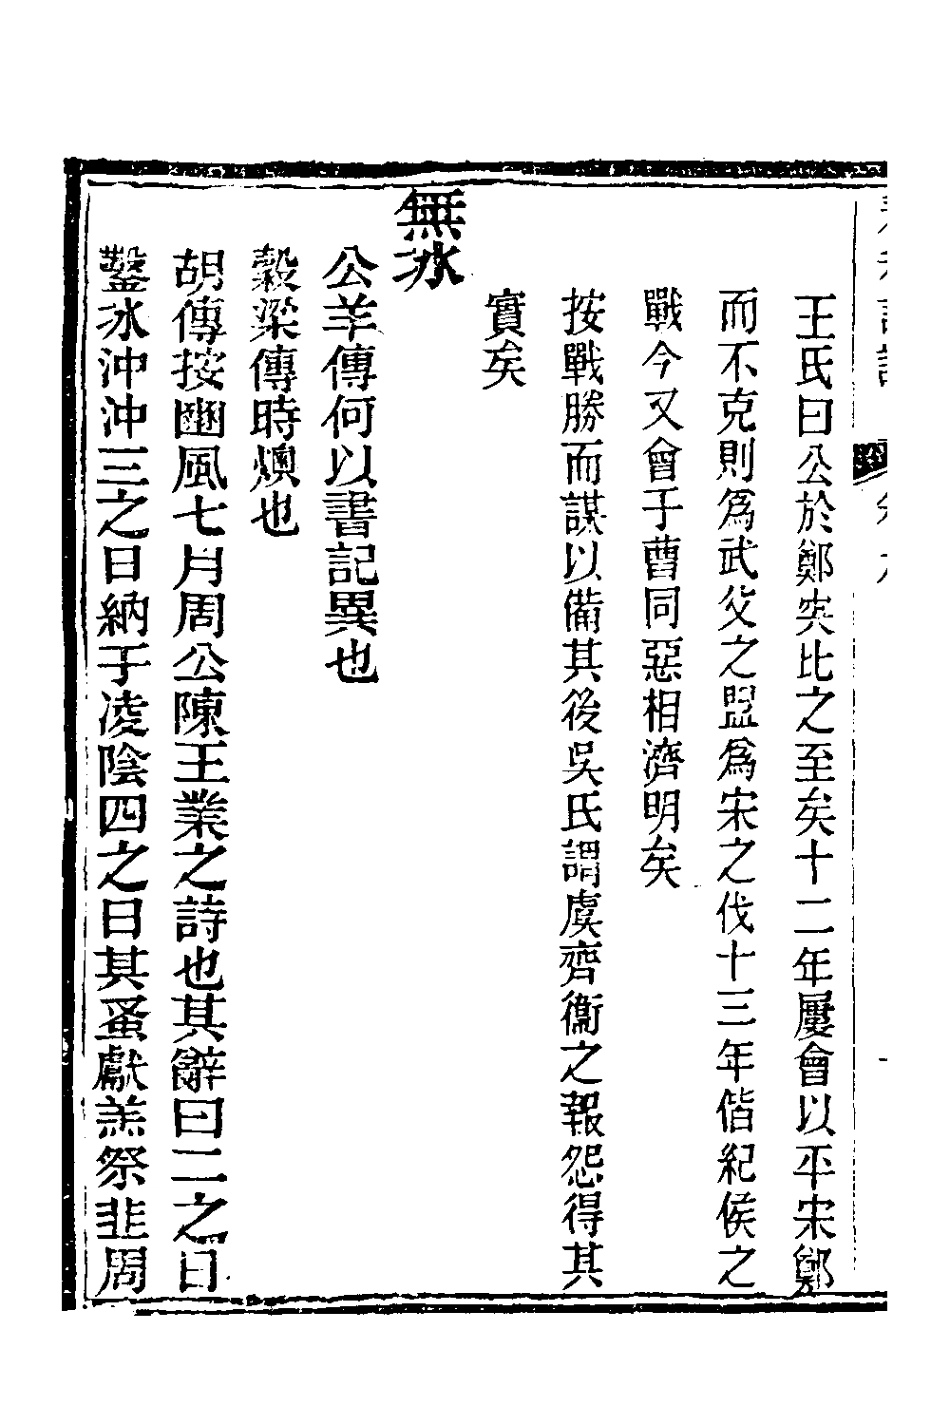 王氏曰公於鄭突比之至矣十二年屢會以平宋鄭
而不克則爲武父之盟爲宋之伐十三年偕紀侯之
戰今又會于曹同惡相濟明矣
按戰勝而謀以備其後吳氏謂虞齊衞之報怨得其
實矣
無冰
公羊傳何以書記異也
穀梁傳時燠也
胡傳按豳風七月周公陳王業之詩也其辭曰二之日
鑿冰沖沖三之日納于凌陰四之日其蚤獻羔祭韭周